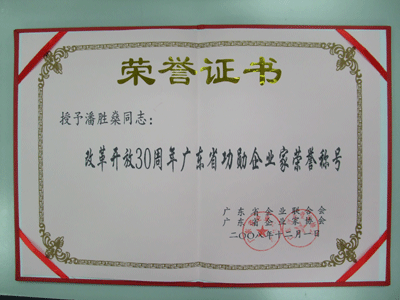 荣誉证书
授予潘胜燊同志：
改革开放30周年广东省功勋企业家荣誉称号
广东省企业联合会
广东省企业家协会
二〇〇八年十二月一日